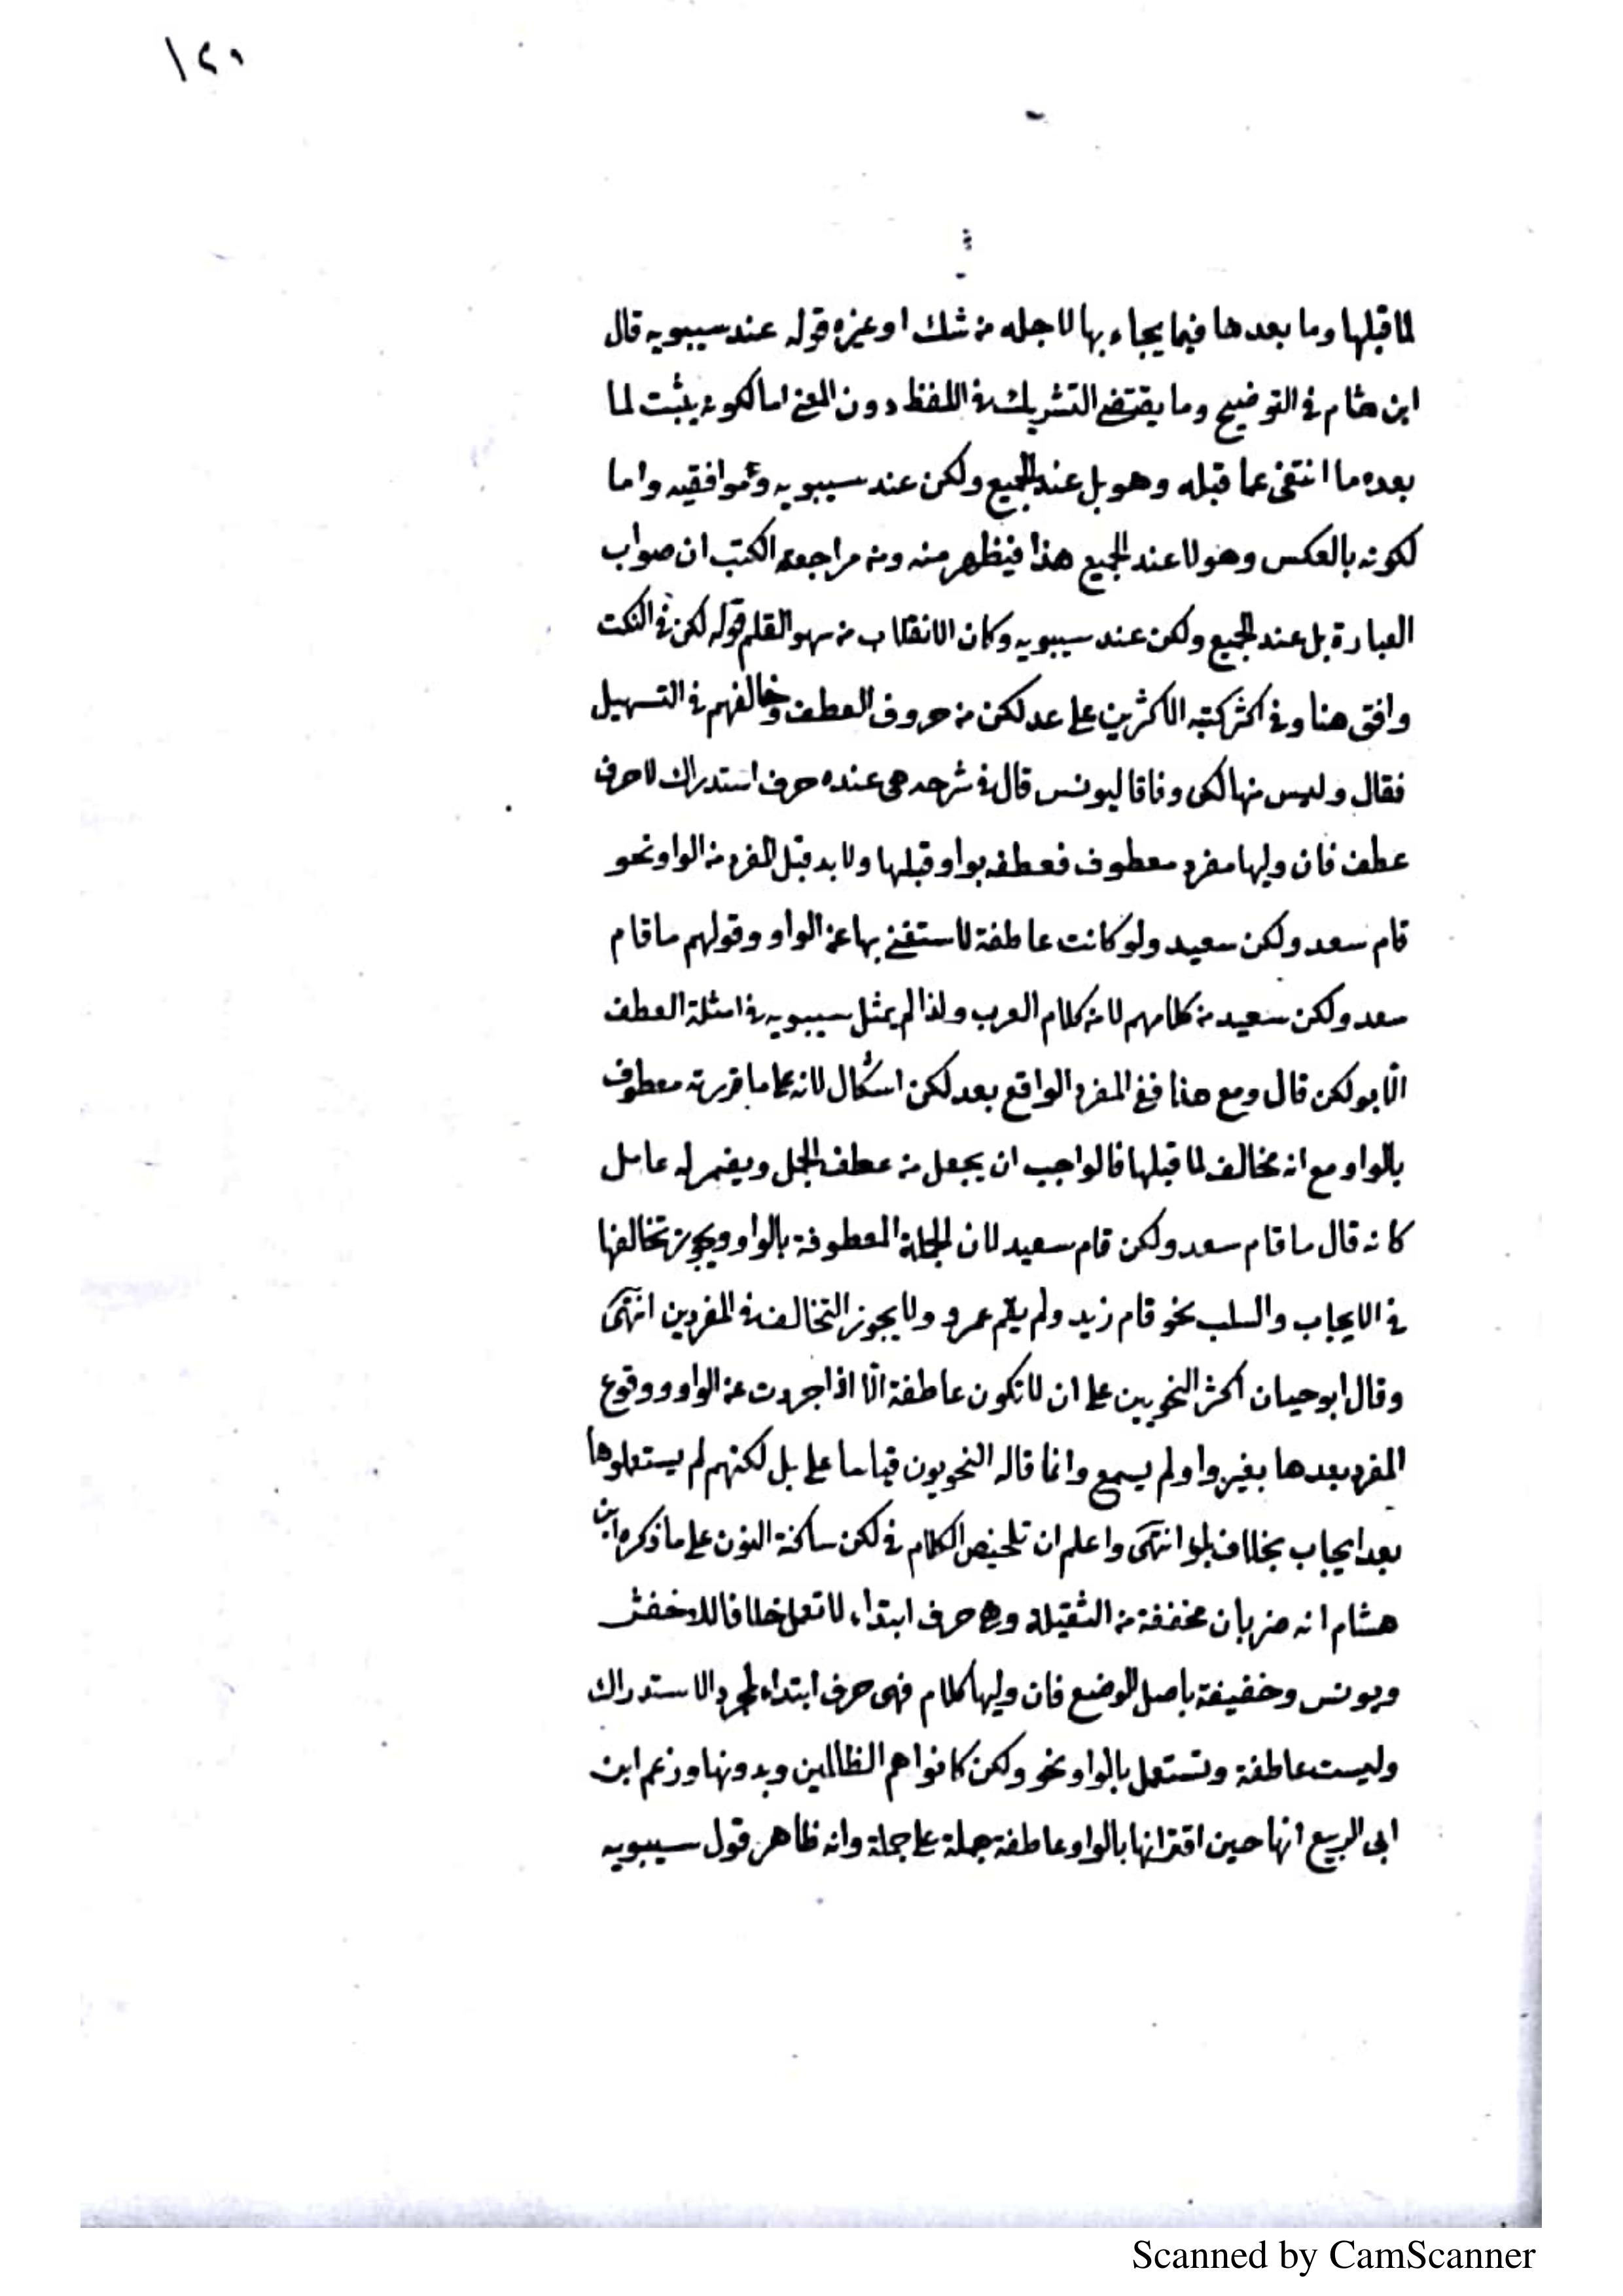 ١٢٠
لما قبلها وما بعدها فيما يجاء بها لاجله من شك او غيره قوله عند سيبويه قال
ابن هشام في التوضيح وما يقتضي التشريك في اللفظ دون المعنى اما لكونه يثبت لما
بعده ما انتفى عما قبله وهو بل عند الجميع ولكن عند سيبويه وموافقيه واما
لكونه بالعكس وهو لا عند الجميع هذا فيظهر منه ومن مراجعة الكتب ان صواب
العبارة بل عند الجميع ولكن عند سيبويه وكان الانقلاب من سهو القلم قوله لكن في النكت
وافق هنا وفي اكثر كتبه الاكثرين على عد لكن من حروف العطف وخالفهم في التسهيل
فقال وليس منها لكن وفاقا ليونس قال في شرحه هي عنده حرف استدراك لا حرف
عطف فان وليها مفرد معطوف فعطفه بواو قبلها ولا بد قبل المفرد من الواو نحو
قام سعد ولكن سعيد ولو كانت عاطفة لاستغنى بها عن الواو وقولهم ما قام
سعد ولكن سعيد من كلامهم لا من كلام العرب ولذا لم يمثل سيبويه في امثلة العطف
الّا بولكن قال ومع هذا ففي المفرد الواقع بعد لكن اشكال لانه على ما قررته معطوف
بالواو مع انه مخالف لما قبلها فالواجب ان يجعل من عطف الجمل ويضمر له عامل
كانه قال ما قام سعد ولكن قام سعيد لان الجملة المعطوفة بالواو ويجوز تخالفها
في الايجاب والسلب نحو قام زيد ولم يقم عمرو ولا يجوز التخالف في المفردين انتهى
وقال ابو حيان اكثر النحويين على ان لا تكون عاطفة الّا اذا جردت عن الواو ووقوع
المفرد بعدها بغير واو لم يسمع وانما قاله النحويون قياسا على بل لكنهم لم يستعملوها
بعد ايجاب بخلاف بل انتهى واعلم ان تلخيص الكلام في لكن ساكنة النون على ما ذكره ابن
هشام انه ضربان مخففة من الثقيلة وهي حرف ابتداء لا تعمل خلافا للاخفش
ويونس وخفيفة باصل الوضع فان وليها كلام فهي حرف ابتداء لمجرد الاستدراك
وليست عاطفة وتستعمل بالواو نحو ولكن كانوا هم الظالمين وبدونها وزعم ابن
ابي الربيع انها حين اقترانها بالواو عاطفة جملة على جملة وانه ظاهر قول سيبويه
Scanned by CamScanner